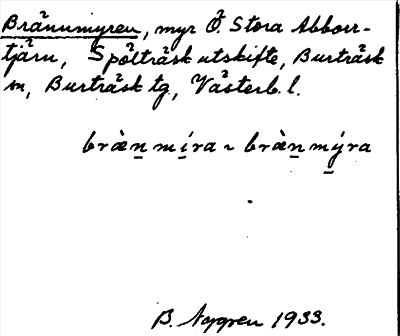 Brännmyren, myr Ö. Stora Abborr-
tjärn, Spölträsk utskifte, Burträsk
sn, Burträsk tg, Västerb. l.
bràn̲mí̲ra ~ bràn̲mý̲ra
B. Nygren 1933.